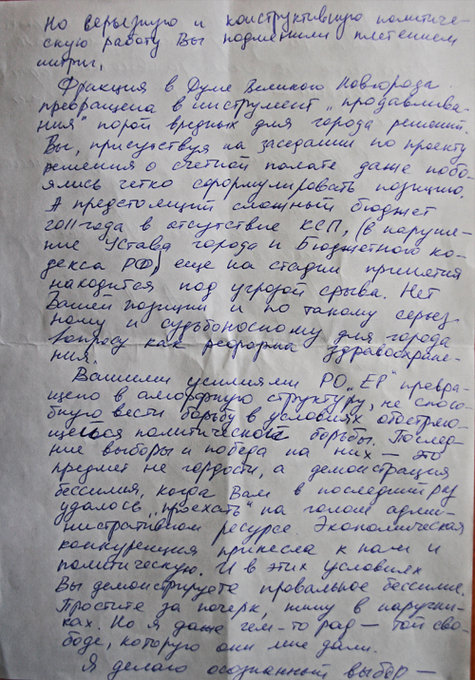 Но серьезную и конструктивную политиче-
скую работу Вы подменили плетением
интриг.
Фракция в Думе Великого Новгорода
превращена в инструмент „продавлива-
ния" порой вредных для города решений
Вы, присутствуя на заседании по проекту
решения о счетной палате даже побо-
ялись четко сформулировать позицию.
А предстоящий сложный бюджет
2011 года в отсутствие КСП, (в наруше-
ние Устава города и Бюджетного ко-
декса РФ) еще на стадии принятия
находится под угрозой срыва. Нет
Вашей позиции и по такому серьез-
ному и судьбоносному для города
вопросу как реформа здравоохране-
ния.
Вашими усилиями РО „ЕР" превра-
щено в аморфную структуру, не способ-
ную вести борьбу в условиях обостряю-
щейся политической борьбы. Послед-
ние выборы и победа на них — это
предмет не гордости, а демонстрация
бессилия, когда Вам в последний раз
удалось „проехать" на голом адми-
нистративном ресурсе. Экономическая
конкуренция принесла к нам и
политическую. И в этих условиях
Вы демонстрируете провальное бессилие.
Простите за почерк, пишу в наручни-
ках. Но я даже чем-то рад — той сво-
боде, которую они мне дали.
Я делаю осознанный выбор —